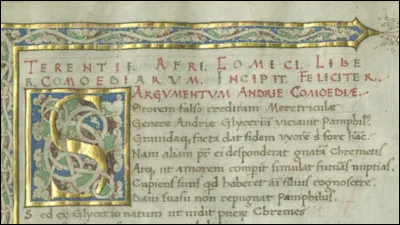 TERENTII. AFRI. COMICI. LIBE
R. COMOEDIARVM. INCIPIT. FELICITER.
ARGVMENTVM ANDRIE COMOEDIÆ.
Sororem falso creditam Meretriculę
Genere Andrię Glycerii viciauit Pamphil9.
Grauidaq; facta dat fidem vxorē s̄ fore hāc.
Nam aliam pr̄ ei desponderat gnatā Chremetis
Atq; ut amorem compit simulat futuras nuptias.
Cupiens suus qd haberet ai filius cognoscere.
Daui suasu non repugnat Pamphilus.
Sed ex Glycerio natum ut uidit Chremes